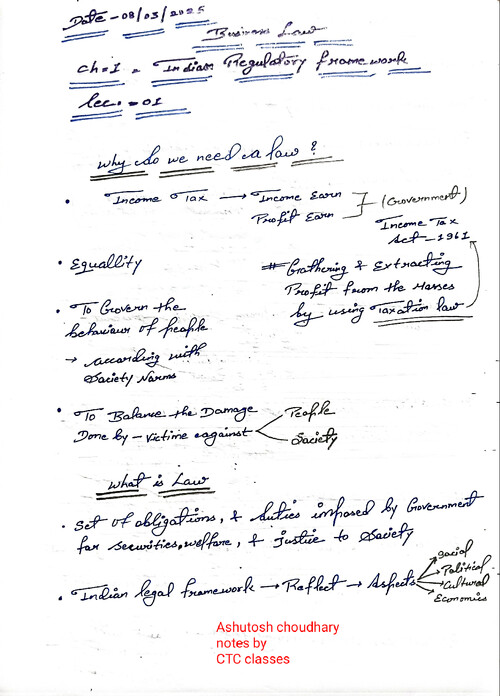 Date - 08/03/2025
Business Law
Ch=1 - Indian Regulatory framework
lec. = 01
why do we need a law?
• Income Tax → Income Earn
Profit Earn
(Government)
Income Tax
Act - 1961
• Equallity
# Gathering & Extracting
Profit from the Masses
by using Taxation law
• To Govern the
behaviour of people
→ according with
Society Norms
• To Balance the Damage
Done by - Victime eagainst
People
Society
what is Law
• Set of obligations, & duties imposed by Government
for securities, welfare, & justice to Society
• Indian legal framework → Reflect → Aspects
social
Political
Cultural
Economics
Ashutosh choudhary
notes by
CTC classes